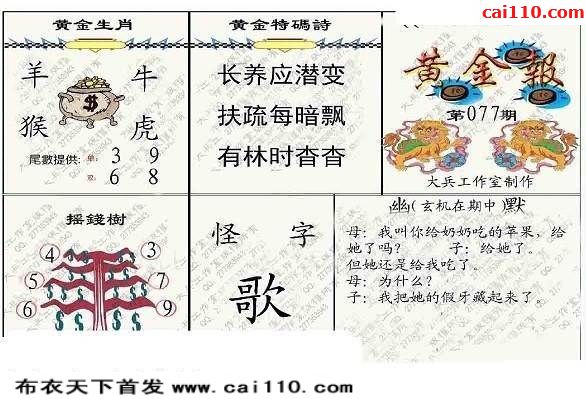 cai110.com
黄金生肖
羊 牛
猴 虎
尾數提供: 单: 3 9
双: 6 8
黄金特碼詩
长养应潜变
扶疏每暗飘
有林时杳杳
黄金報
第077期
大兵工作室制作
摇錢樹
4 3
5 7
6 9
怪 字
歌
幽(玄机在期中)默
母：我叫你给奶奶吃的苹果，给
她了吗？ 子：给她了。
但她还是给我吃了。
母：为什么？
子：我把她的假牙藏起来了。
布衣天下首发 www.cai110.com